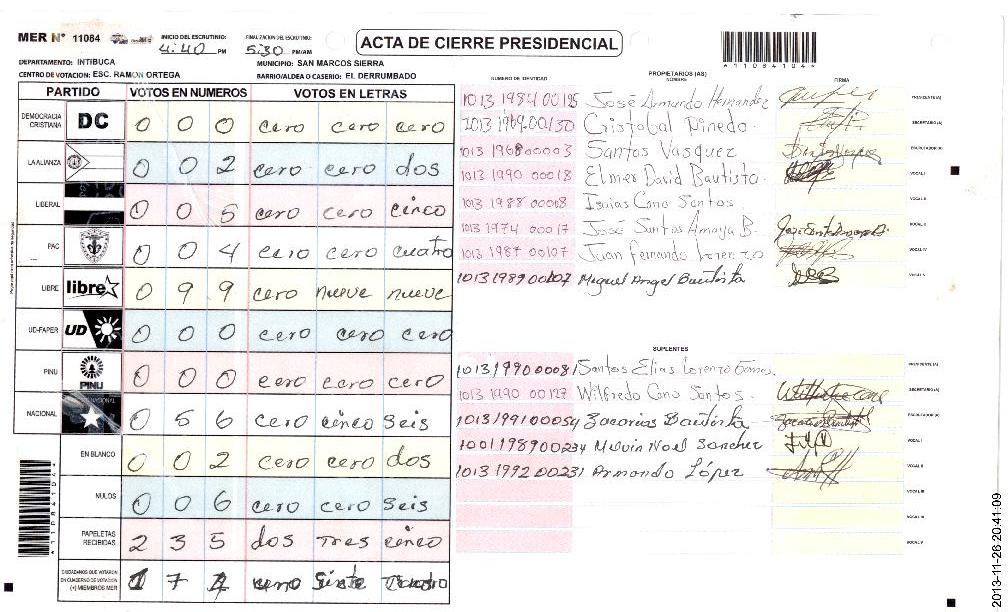 MER Nº 11084
INICIO DEL ESCRUTINIO: 4:40 PM
FINALIZACION DEL ESCRUTINIO: 5:30 PM/AM
ACTA DE CIERRE PRESIDENCIAL
A1108410 4
DEPARTAMENTO: INTIBUCA
MUNICIPIO: SAN MARCOS SIERRA
CENTRO DE VOTACION: ESC. RAMON ORTEGA
BARRIO/ALDEA O CASERIO: EL DERRUMBADO
PARTIDO VOTOS EN NUMEROS VOTOS EN LETRAS
DEMOCRACIA CRISTIANA DC 0 0 0 cero cero cero
LA ALIANZA 0 0 2 cero cero dos
LIBERAL 0 0 5 cero cero cinco
PAC 0 0 4 cero cero cuatro
LIBRE libre 0 9 9 cero nueve nueve
UD-FAPER UD 0 0 0 cero cero cero
PINU PINU 0 0 0 cero cero cero
NACIONAL NACIONAL 0 5 6 cero cinco seis
EN BLANCO 0 0 2 cero cero dos
NULOS 0 0 6 cero cero seis
PAPELETAS RECIBIDAS 2 3 5 dos tres cinco
CIUDADANOS QUE VOTARON EN CUADERNO DE VOTACION (+) MIEMBROS MER 1 7 4 siete
PROPIETARIOS (AS)
NUMERO DE IDENTIDAD NOMBRE FIRMA
1013 1984 00185 José Armando Hernandez PRESIDENTE(A)
1013 1969 00130 Cristobal Pineda SECRETARIO(A)
1013 1968 00003 Santos Vasquez ESCRUTADOR(A)
1013 1990 00018 Elmer David Bautista VOCAL I
1013 1988 00068 Isaias Cano Santos VOCAL II
1013 1974 00017 José Santos Amaya B. VOCAL III
1013 1987 00107 Juan Fernando Lorenzo VOCAL IV
1013 1989 00207 Miguel Angel Bautista VOCAL V
SUPLENTES
1013 1990 00081 Santos Elias Lorenzo Gomes PRESIDENTE(A)
1013 1990 00127 Wilfredo Cano Santos SECRETARIO(A)
1013 1991 00054 Zacarias Bautista ESCRUTADOR(A)
1001 1989 00234 Melvin Noel Sanchez VOCAL I
1013 1992 00231 Armando López VOCAL II
VOCAL III
VOCAL IV
VOCAL V
2013-11-26 20:41:09